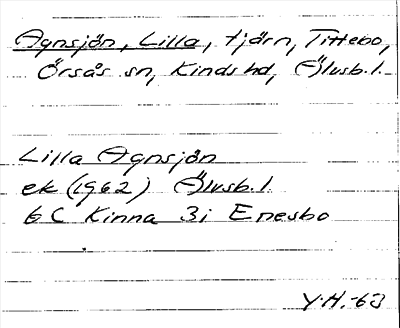 Agnsjön, Lilla, tjärn, Tittebo,
Örsås sn, Kinds hd, Älvsb. l.
Lilla Agnsjön
ek (1962) Älvsb. l.
6 C Kinna 3i Enesbo
Y.H.-63